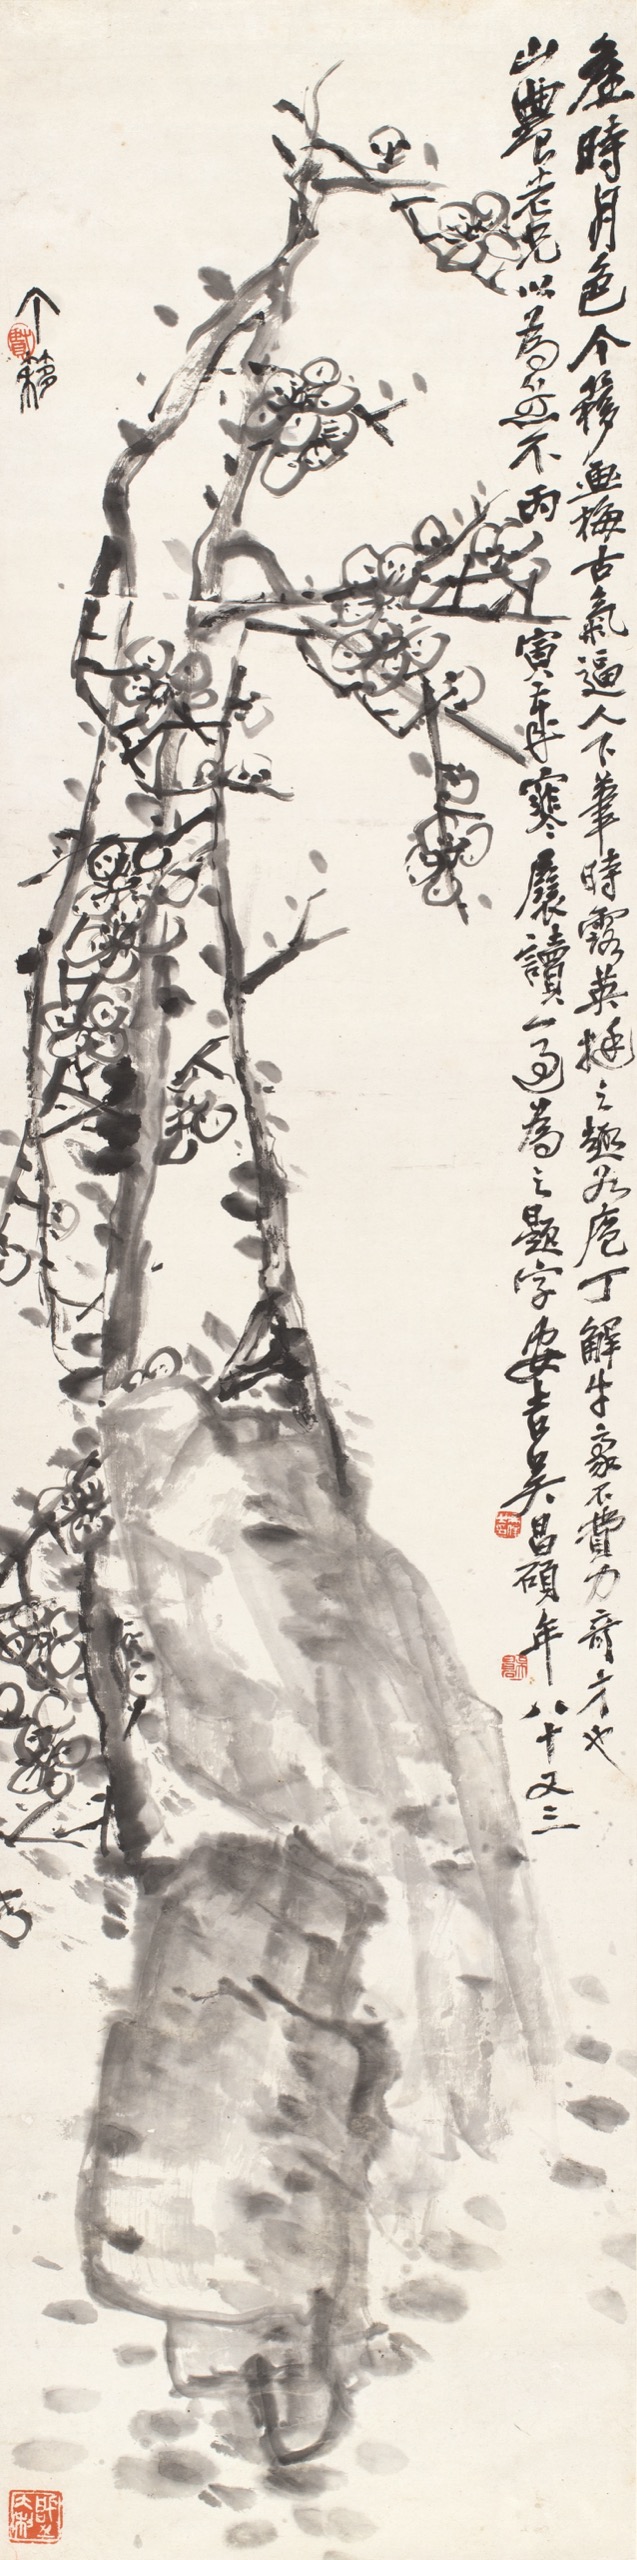 舊時月色个簃画梅古氣逼人下筆時露英挺之趣如庖丁解牛豪不費力奇才也
山農老兄以為然不丙寅年寒展讀一過為之題字安吉吴昌碩年八十又三
个簃